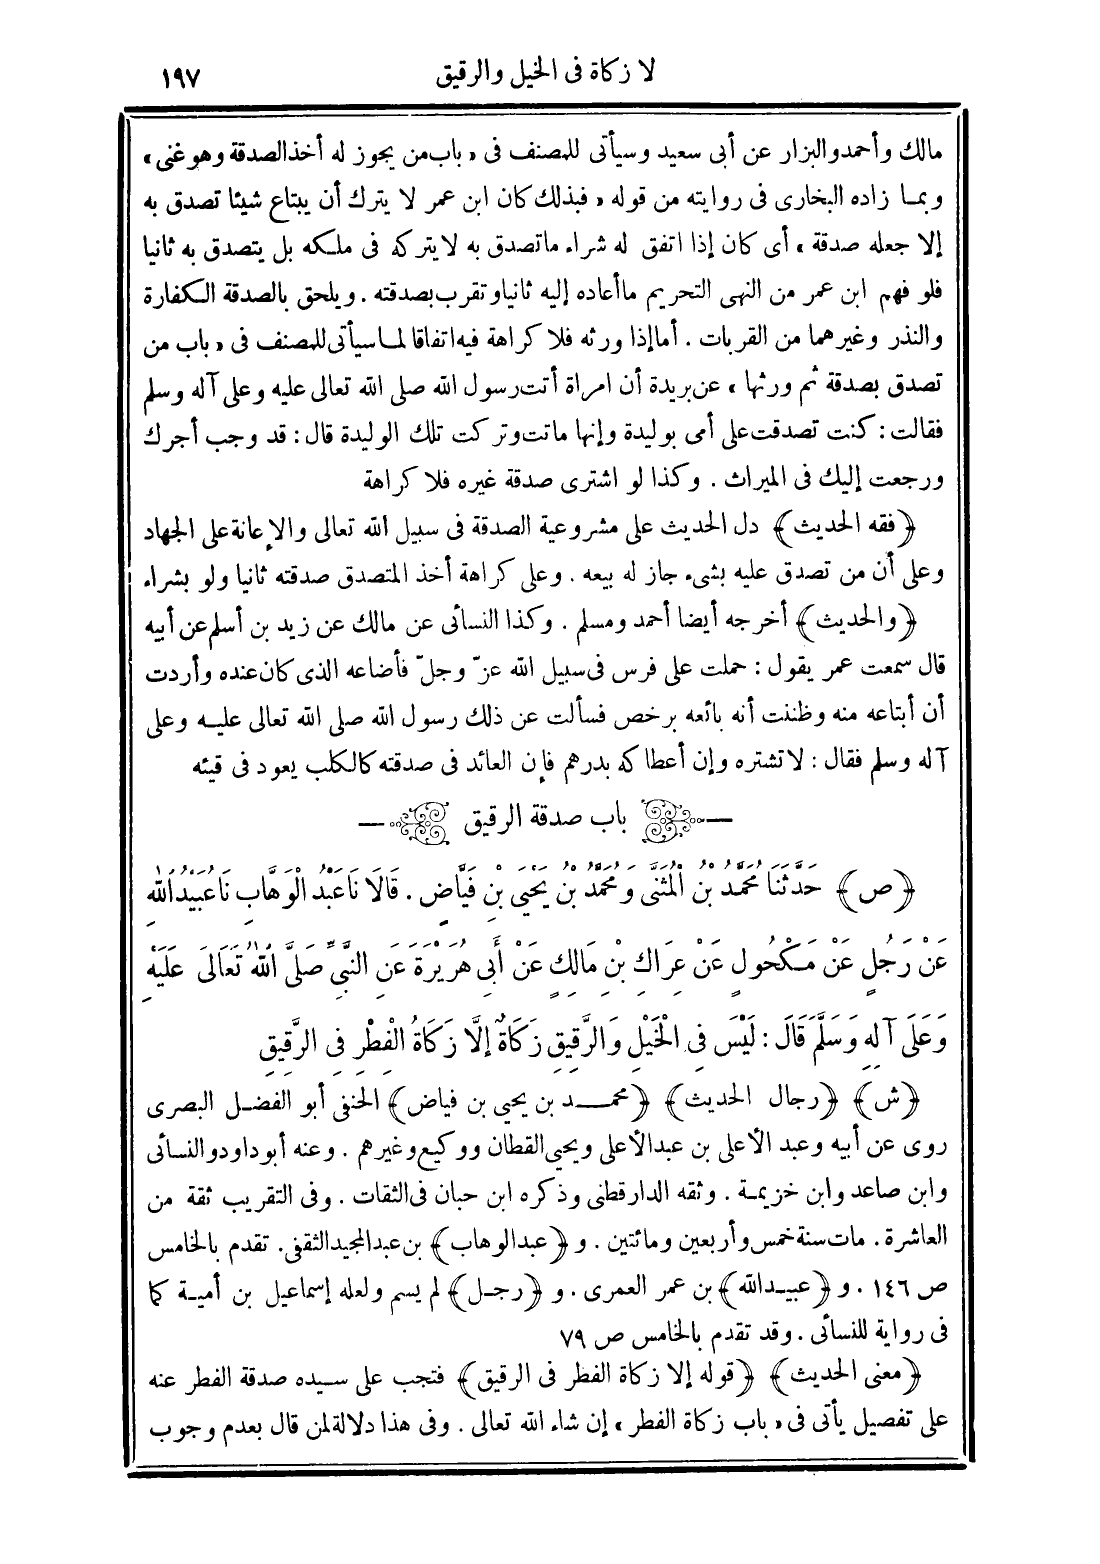 لا زكاة فى الخيل والرقيق
١٩٧
مالك وأحمد والبزار عن أبى سعيد وسيأتى للمصنف فى « باب من يجوز له أخذ الصدقة وهو غنى »
وبما زاده البخارى فى روايته من قوله « فبذلك كان ابن عمر لا يترك أن يبتاع شيئا تصدق به
إلا جعله صدقة » أى كان إذا اتفق له شراء ما تصدق به لا يتركه فى ملكه بل يتصدق به ثانيا
فلو فهم ابن عمر من النهى التحريم ما أعاده إليه ثانيا وتقرب بصدقته . ويلحق بالصدقة الكفارة
والنذر وغيرهما من القربات . أما إذا ورثه فلا كراهة فيه اتفاقا لما سيأتى للمصنف فى « باب من
تصدق بصدقة ثم ورثها » عن بريدة أن امرأة أتت رسول الله صلى الله تعالى عليه وعلى آله وسلم
فقالت : كنت تصدقت على أمى بوليدة وإنها ماتت وتركت تلك الوليدة قال : قد وجب أجرك
ورجعت إليك فى الميراث . وكذا لو اشترى صدقة غيره فلا كراهة
﴿فقه الحديث﴾ دل الحديث على مشروعية الصدقة فى سبيل الله تعالى والإعانة على الجهاد
وعلى أن من تصدق عليه بشىء جاز له بيعه . وعلى كراهة أخذ المتصدق صدقته ثانيا ولو بشراء
﴿والحديث﴾ أخرجه أيضا أحمد ومسلم . وكذا النسائى عن مالك عن زيد بن أسلم عن أبيه
قال سمعت عمر يقول : حملت على فرس فى سبيل الله عزّ وجلّ فأضاعه الذى كان عنده وأردت
أن أبتاعه منه وظننت أنه بائعه برخص فسألت عن ذلك رسول الله صلى الله تعالى عليه وعلى
آله وسلم فقال : لا تشتره وإن أعطاكه بدرهم فإن العائد فى صدقته كالكلب يعود فى قيئه
باب صدقة الرقيق
﴿ص﴾ حَدَّثَنَا مُحَمَّدُ بْنُ الْمُثَنَّى وَمُحَمَّدُ بْنُ يَحْيَى بْنِ فَيَّاضٍ . قَالَا نَا عَبْدُ الْوَهَّابِ نَا عُبَيْدُ اللهِ
عَنْ رَجُلٍ عَنْ مَكْحُولٍ عَنْ عِرَاكِ بْنِ مَالِكٍ عَنْ أَبِى هُرَيْرَةَ عَنِ النَّبِىِّ صَلَّى اللهُ تَعَالَى عَلَيْهِ
وَعَلَى آلِهِ وَسَلَّمَ قَالَ : لَيْسَ فِى الْخَيْلِ وَالرَّقِيقِ زَكَاةٌ إلَّا زَكَاةُ الْفِطْرِ فِى الرَّقِيقِ
﴿ش﴾ ﴿رجال الحديث﴾ ﴿محمد بن يحيى بن فياض﴾ الحنفى أبو الفضل البصرى
روى عن أبيه وعبد الأعلى بن عبدالأعلى ويحيى القطان ووكيع وغيرهم . وعنه أبو داود والنسائى
وابن صاعد وابن خزيمة . وثقه الدارقطنى وذكره ابن حبان فى الثقات . وفى التقريب ثقة من
العاشرة . مات سنة خمس وأربعين ومائتين . و ﴿عبدالوهاب﴾ بن عبدالمجيد الثقفى. تقدم بالخامس
ص ١٤٦ . و ﴿عبيدالله﴾ بن عمر العمرى . و ﴿رجل﴾ لم يسم ولعله إسماعيل بن أمية كما
فى رواية للنسائى . وقد تقدم بالخامس ص ٧٩
﴿معنى الحديث﴾ ﴿قوله إلا زكاة الفطر فى الرقيق﴾ فتجب على سيده صدقة الفطر عنه
على تفصيل يأتى فى « باب زكاة الفطر » إن شاء الله تعالى . وفى هذا دلالة لمن قال بعدم وجوب